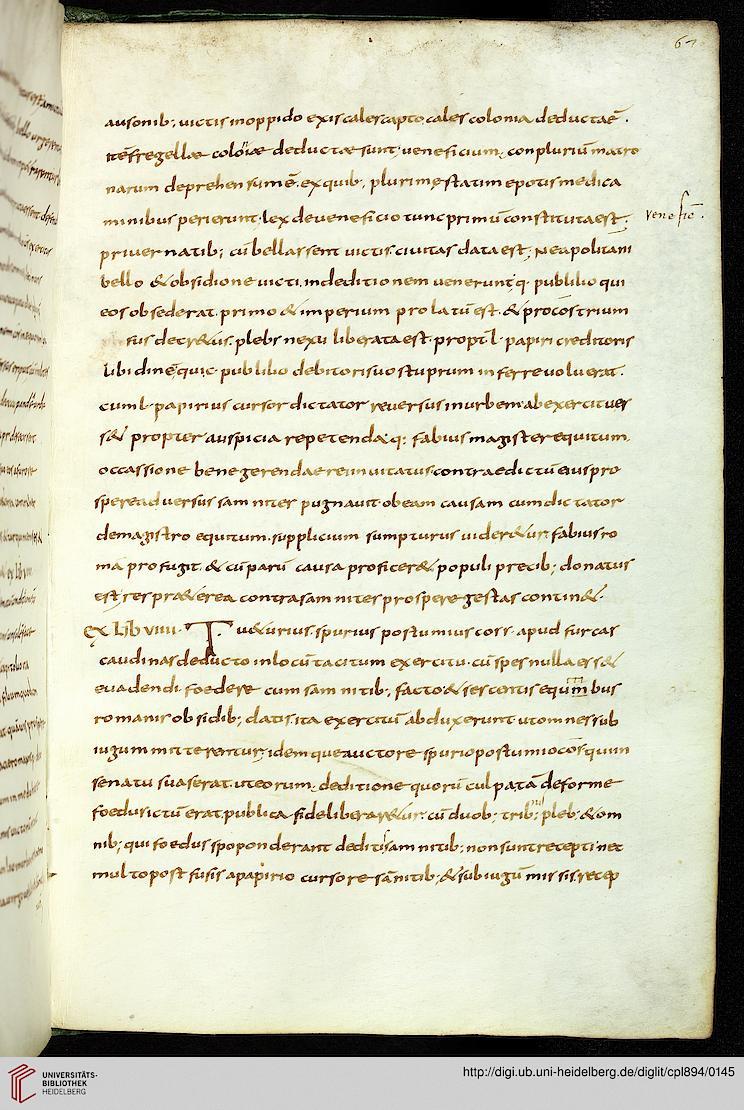 67
ausonib; uictis inoppido exiscalescapto. cales colonia deductaē.
itē fregellae coloiae deductae sunt; ueneficium, conplurium matro
narum deprehensumē. exquib, plurimę statim epotis medica
minibus perierunt; lex deueneficio tunc primū constituta est;
veneficē.
priuernatib; cū bellassent uictis ciuitas data est; neapolitani
bello &obsidione uicti. indeditionem uenerunt; q. publilio qui
eos obsederat. primo &imperium prolatū est. &procōs trium
fus decr&us. plebs nexu liberata est. propt l. papiri creditoris
libidinē, qui c. publilio debitori suo stuprum inferre uoluerat.
cum l. papirius cursor dictator reuersus inurbem abexercitu es
s& propter auspicia repetenda. q; fabius magister equitum.
occassione bene gerendae rei inuitatus contra edictū eius pro
spere aduersus samniter pugnauit. obeam causam cum dictator
demagistro equitum. supplicium sumpturus uider&ur. fabius ro
mā profugit. & cū parū causa proficer& populi precib; donatus
est; res pra&erea contra samniter prospere gestas contin&.
ex Lib viiii. T. u&urius. spurius postumius coss. apud furcas
caudinas deducto inlocū tacitum exercitu. cū spes nulla ess&
euadendi. foedere cum samnitib; facto & sescentis equitibus
romanis obsidib; datis. ita exercitū abduxerunt ut omnes sub
iugum mitterentur; idemque auctore spurio postumio cōs qui in
senatu suaserat. ut eorum. deditione quorū culpa tā deforme
foedus ictū erat. publica fides liberar&ur. cū duob; trib; pleb; &om
nib; qui foedus spoponderant dediti samnitib; non sunt recepti; nec
multo post fusis a papirio cursore sānitib; & sub iugū missis. recep
UNIVERSITÄTS-
BIBLIOTHEK
HEIDELBERG
http://digi.ub.uni-heidelberg.de/diglit/cpl894/0145